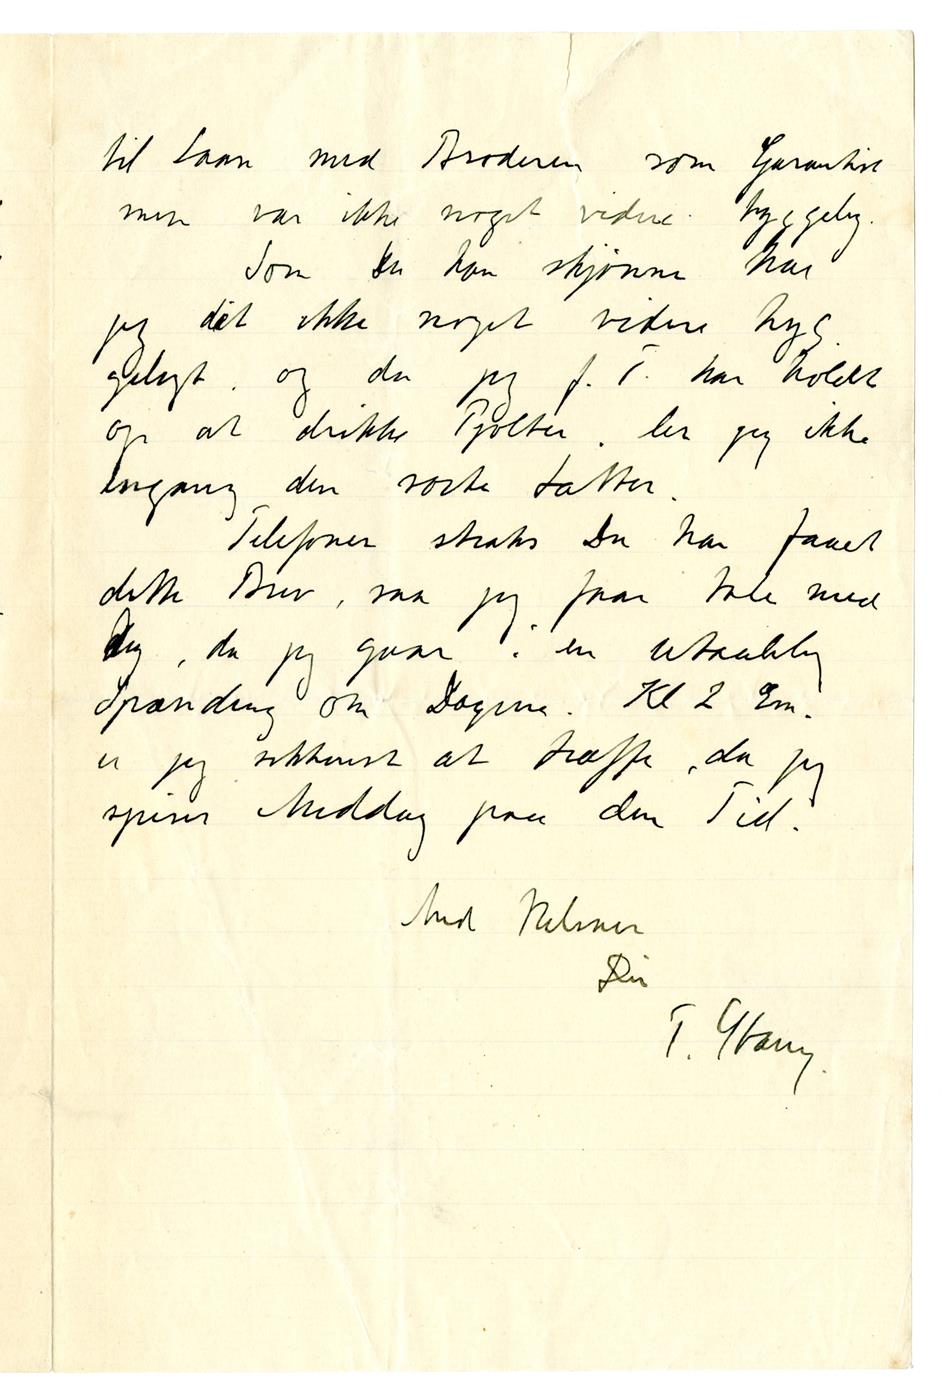 til Laan med Broderen som Garantist
men var ikke noget videre hyggelig.
Som Du kan skjønne har
jeg det ikke noget videre hyg
geligt, og da jeg f. T. har holdt
op at drikke Pjolter, ler jeg ikke
engang den sorte Latter.
Telefoner straks Du har faaet
dette Brev, saa jeg faar tale med
Dig, da jeg gaar i en utaalelig
Spænding om Dagene. Kl 2 Em.
er jeg sikkrest at træffe, da jeg
spiser Middag paa den Tid.
Med Hilsner
Din
T.